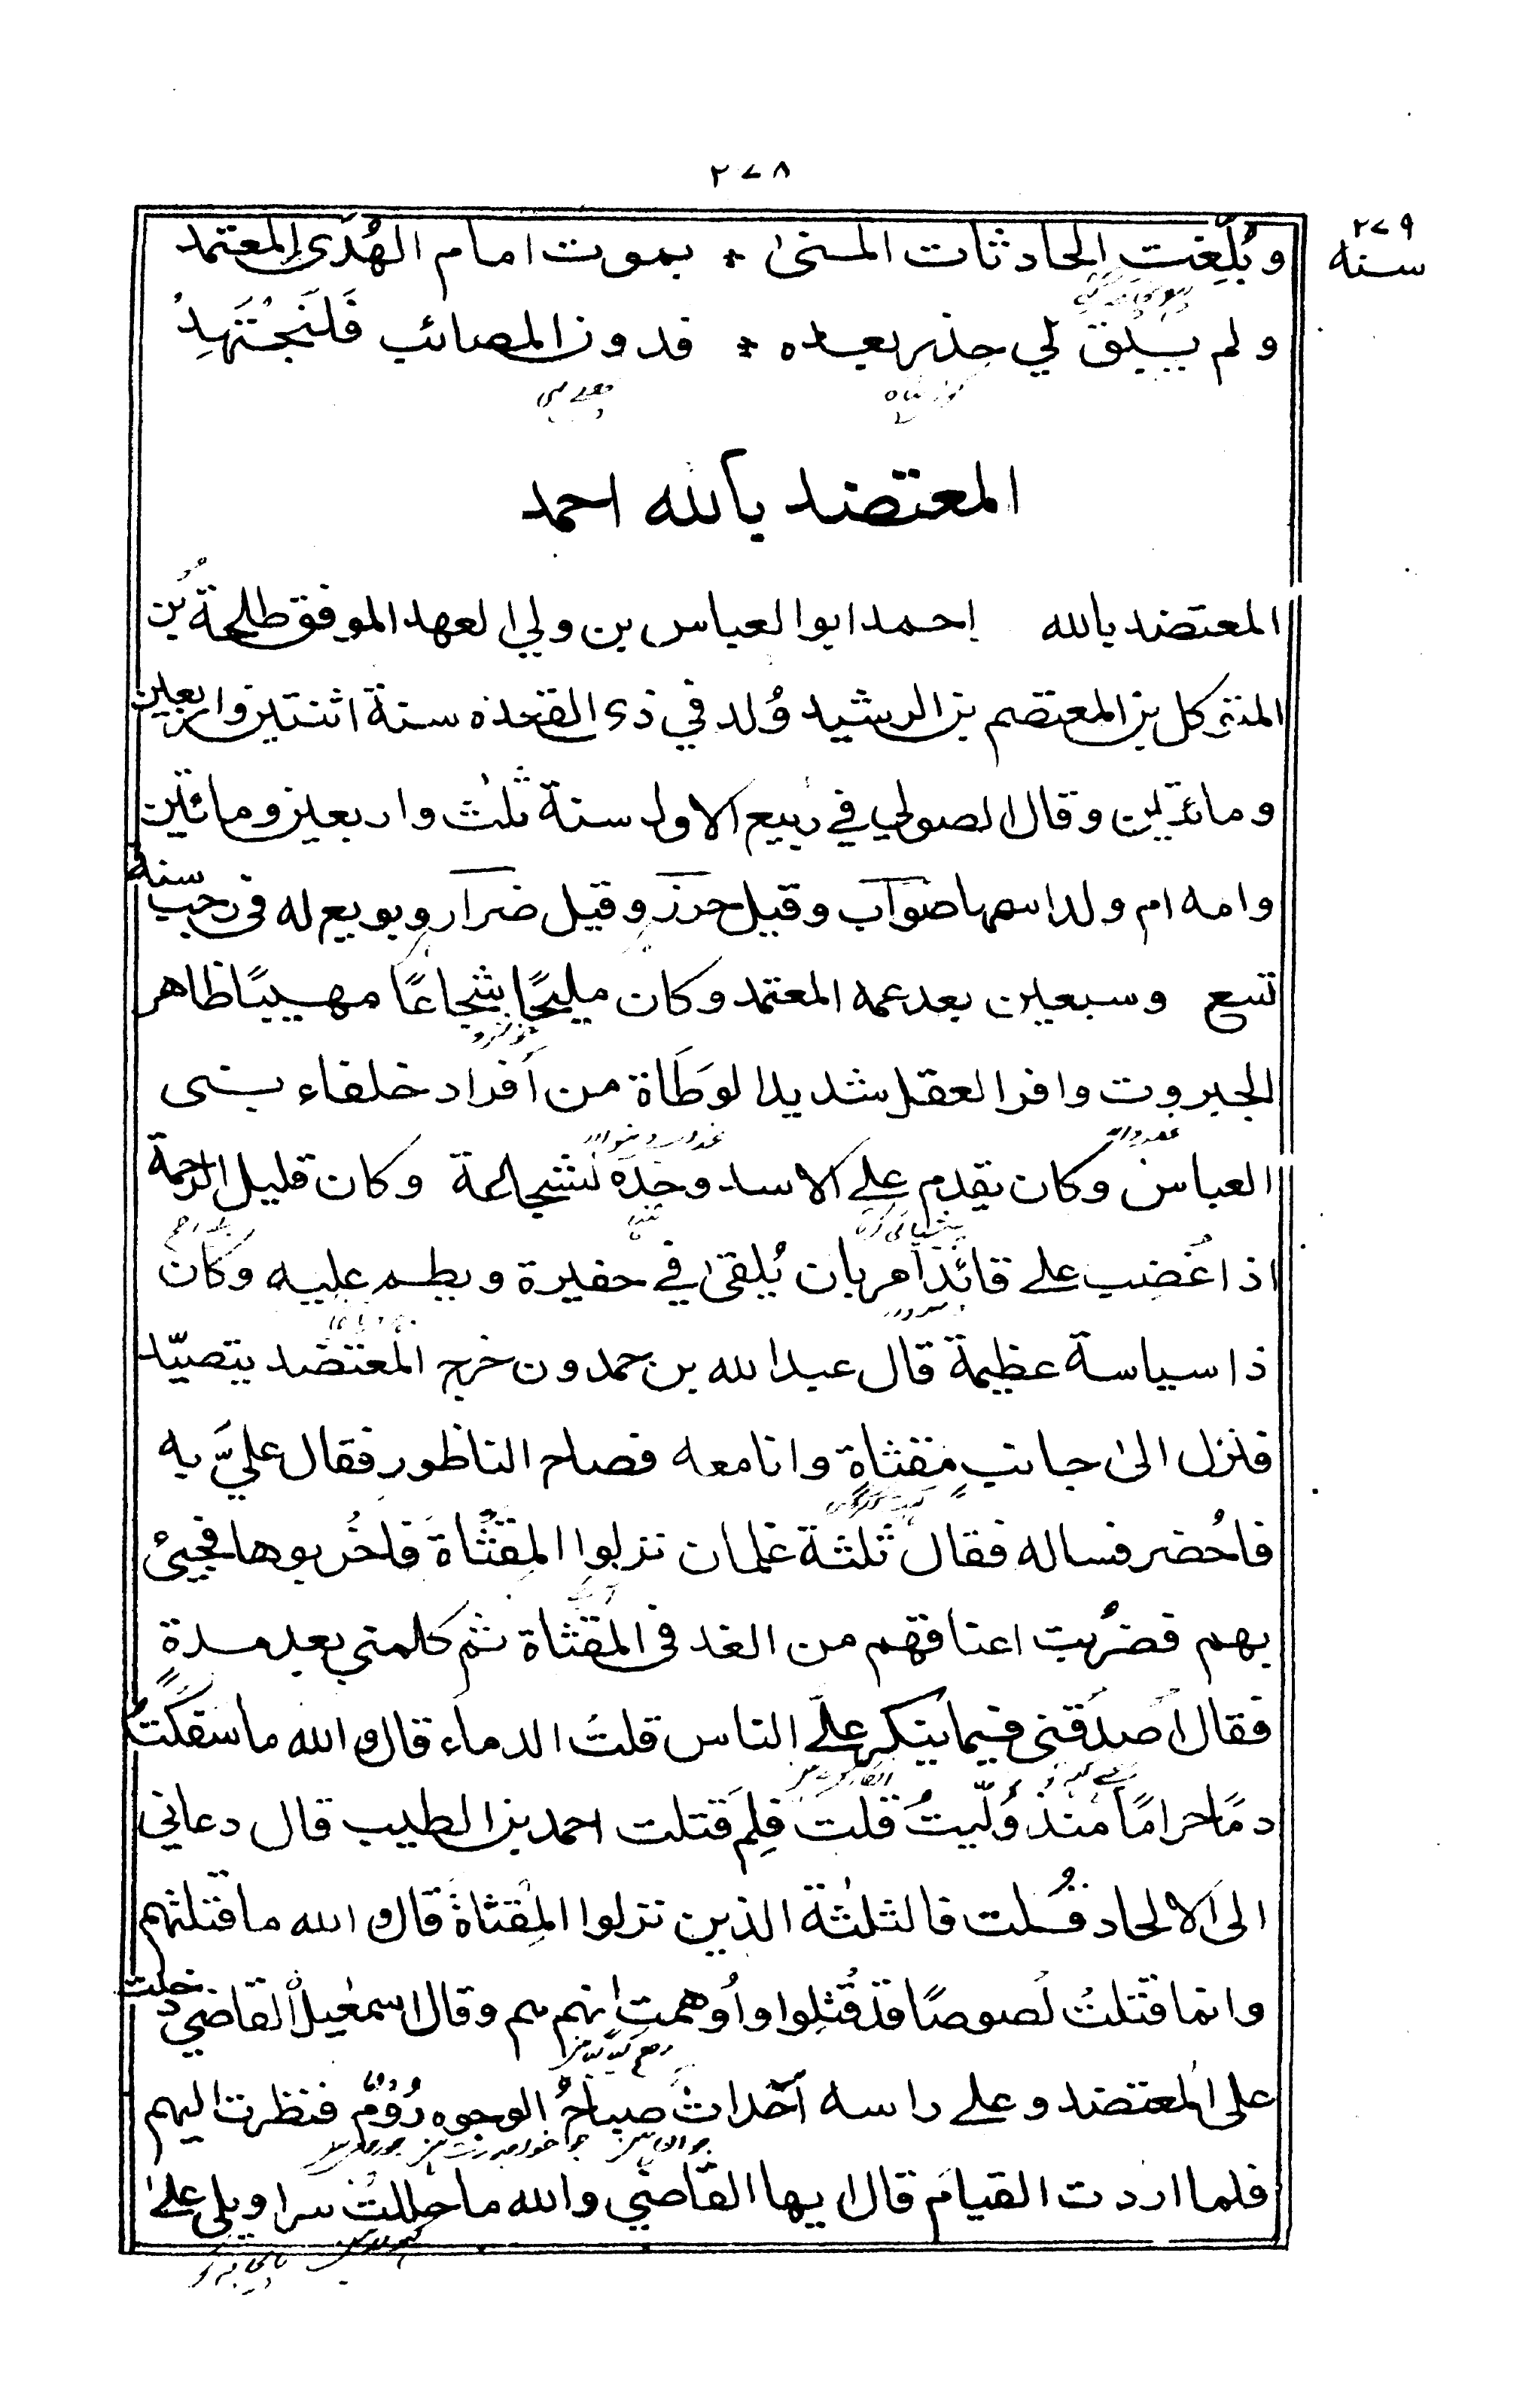 ٢٧٨
سنه ٢٧٩
وبُلّغت الحادثات المنى * بموت امام الهُدى المعتمد
ولم يبق لي حذر بعده * فدون المصائب فلتجتهد
المعتضد بالله احمد
المعتضد بالله احمد ابوالعباس بن ولي العهد الموفق طلحة بن
المتوكل بن المعتصم بن الرشيد وُلد في ذى القعده سنة اثنتين واربعين
ومائتين وقال الصولي في ربيع الاول سنة ثلث واربعين ومائتين
وامه ام ولد اسمها صواب وقيل حرز وقيل ضرار وبويع له فى رجب سنة
تسع وسبعين بعد عمه المعتمد وكان مليحًا شجاعًا مهيبًا ظاهر
الجبروت وافر العقل شديد الوطأة من أفراد خلفاء بنى
العباس وكان يقدم على الاسد وحده لشجاعة وكان قليل الرحمة
اذا غضب على قائد امر بان يُلقى في حفيرة ويطم عليه وكان
ذا سياسة عظيمة قال عبدالله بن حمدون خرج المعتضد يتصيّد
فنزل الى جانب مقثاة وانا معه فصاح الناظور فقال عليّ به
فاحُضر فساله فقال ثلثة غلمان نزلوا المِقثاة فاخربوها فجيئ
بهم فضُربت اعناقهم من الغد فى المقثاة ثم كلمني بعد مدة
فقال اصدقنى فيما ينكر عليّ الناس قلتُ الدماء قال والله ما سفكتُ
دمًا حرامًا منذ وُلّيتُ قلت فلِمَ قتلت احمد بن الطيب قال دعاني
الى الالحاد قُلت فالثلثة الذين نزلوا المِقثاة قال والله ما قتلتهم
وانما قتلتُ لصوصًا قد قُتِلوا واُوهمت انهم هم وقال اسمعيل القاضي دخلت
على المعتضد وعلى راسه أحداث صباحُ الوجوه رُوم فنظرت اليهم
فلما اردت القيام قال ايها القاضي والله ما حللتُ سراويلى على